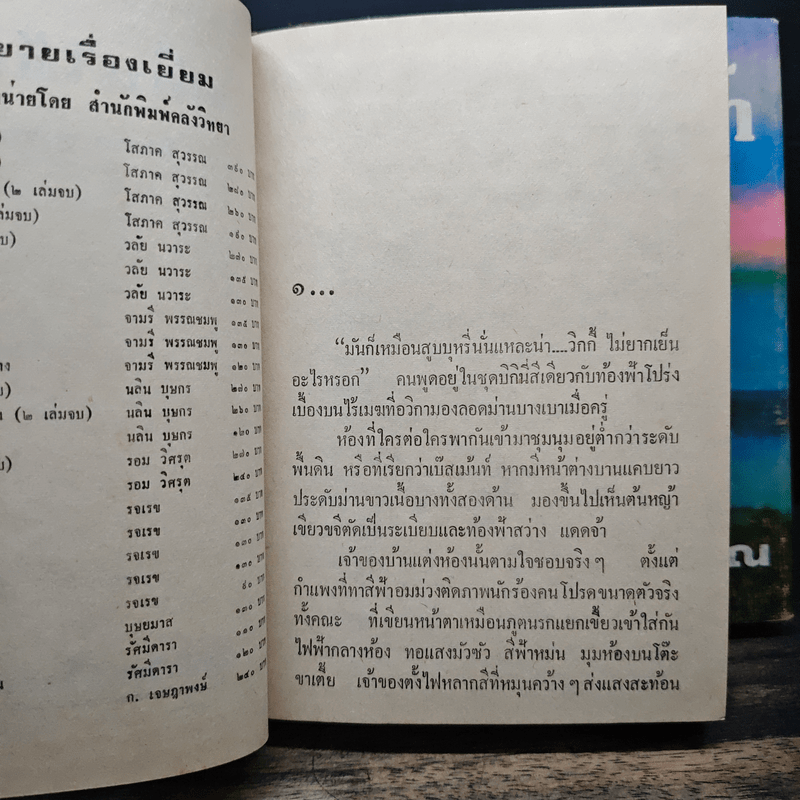 ยายเรื่องเยี่ยม
น่ายโดย สำนักพิมพ์คลังวิทยา
โสภาค สุวรรณ ๓๔๐ บาท
โสภาค สุวรรณ ๒๘๐ บาท
(๒ เล่มจบ) โสภาค สุวรรณ ๒๖๐ บาท
เล่มจบ) โสภาค สุวรรณ ๑๔๐ บาท
บ) วลัย นวาระ ๒๗๐ บาท
วลัย นวาระ ๑๓๕ บาท
วลัย นวาระ ๑๓๐ บาท
จามรี พรรณชมพู ๑๓๕ บาท
จามรี พรรณชมพู ๑๓๐ บาท
าง จามรี พรรณชมพู ๑๒๐ บาท
บ) นลิน บุษกร ๒๗๐ บาท
น (๒ เล่มจบ) นลิน บุษกร ๒๖๐ บาท
นลิน บุษกร ๑๒๐ บาท
บ) รอม วิศรุต ๒๗๐ บาท
รอม วิศรุต ๒๔๐ บาท
รจเรข ๑๓๕ บาท
รจเรข ๑๓๐ บาท
รจเรข ๑๓๐ บาท
รจเรข ๑๓๐ บาท
รจเรข ๑๔๐ บาท
บุษยมาส ๑๓๐ บาท
รัศมีดารา ๑๑๐ บาท
รัศมีดารา ๑๒๐ บาท
น ก. เจษฎาพงษ์ ๒๔๐ บาท
๑...
“มันก็เหมือนสูบบุหรี่นั่นแหละน่า....วิกกี้ ไม่ยากเย็น
อะไรหรอก” คนพูดอยู่ในชุดบิกินี่สีเดียวกับท้องฟ้าโปร่ง
เบื้องบนไร้เมฆที่อวิกามองลอดม่านบางเบาเมื่อครู่
ห้องที่ใครต่อใครพากันเข้ามาชุมนุมอยู่ต่ำกว่าระดับ
พื้นดิน หรือที่เรียกว่าเบ๊สเม้นท์ หากมีหน้าต่างบานแคบยาว
ประดับม่านขาวเนื้อบางทั้งสองด้าน มองขึ้นไปเห็นต้นหญ้า
เขียวขจีตัดเป็นระเบียบและท้องฟ้าสว่าง แดดจ้า
เจ้าของบ้านแต่งห้องนั้นตามใจชอบจริง ๆ ตั้งแต่
กำแพงที่ทาสีฟ้าอมม่วงติดภาพนักร้องคนโปรดขนาดตัวจริง
ทั้งคณะ ที่เขียนหน้าตาเหมือนภูตนรกแยกเขี้ยวเข้าใส่กัน
ไฟฟ้ากลางห้อง ทอแสงมัวซัว สีฟ้าหม่น มุมห้องบนโต๊ะ
ขาเตี้ย เจ้าของตั้งไฟหลากสีที่หมุนคว้าง ๆ ส่งแสงสะท้อน
ณ